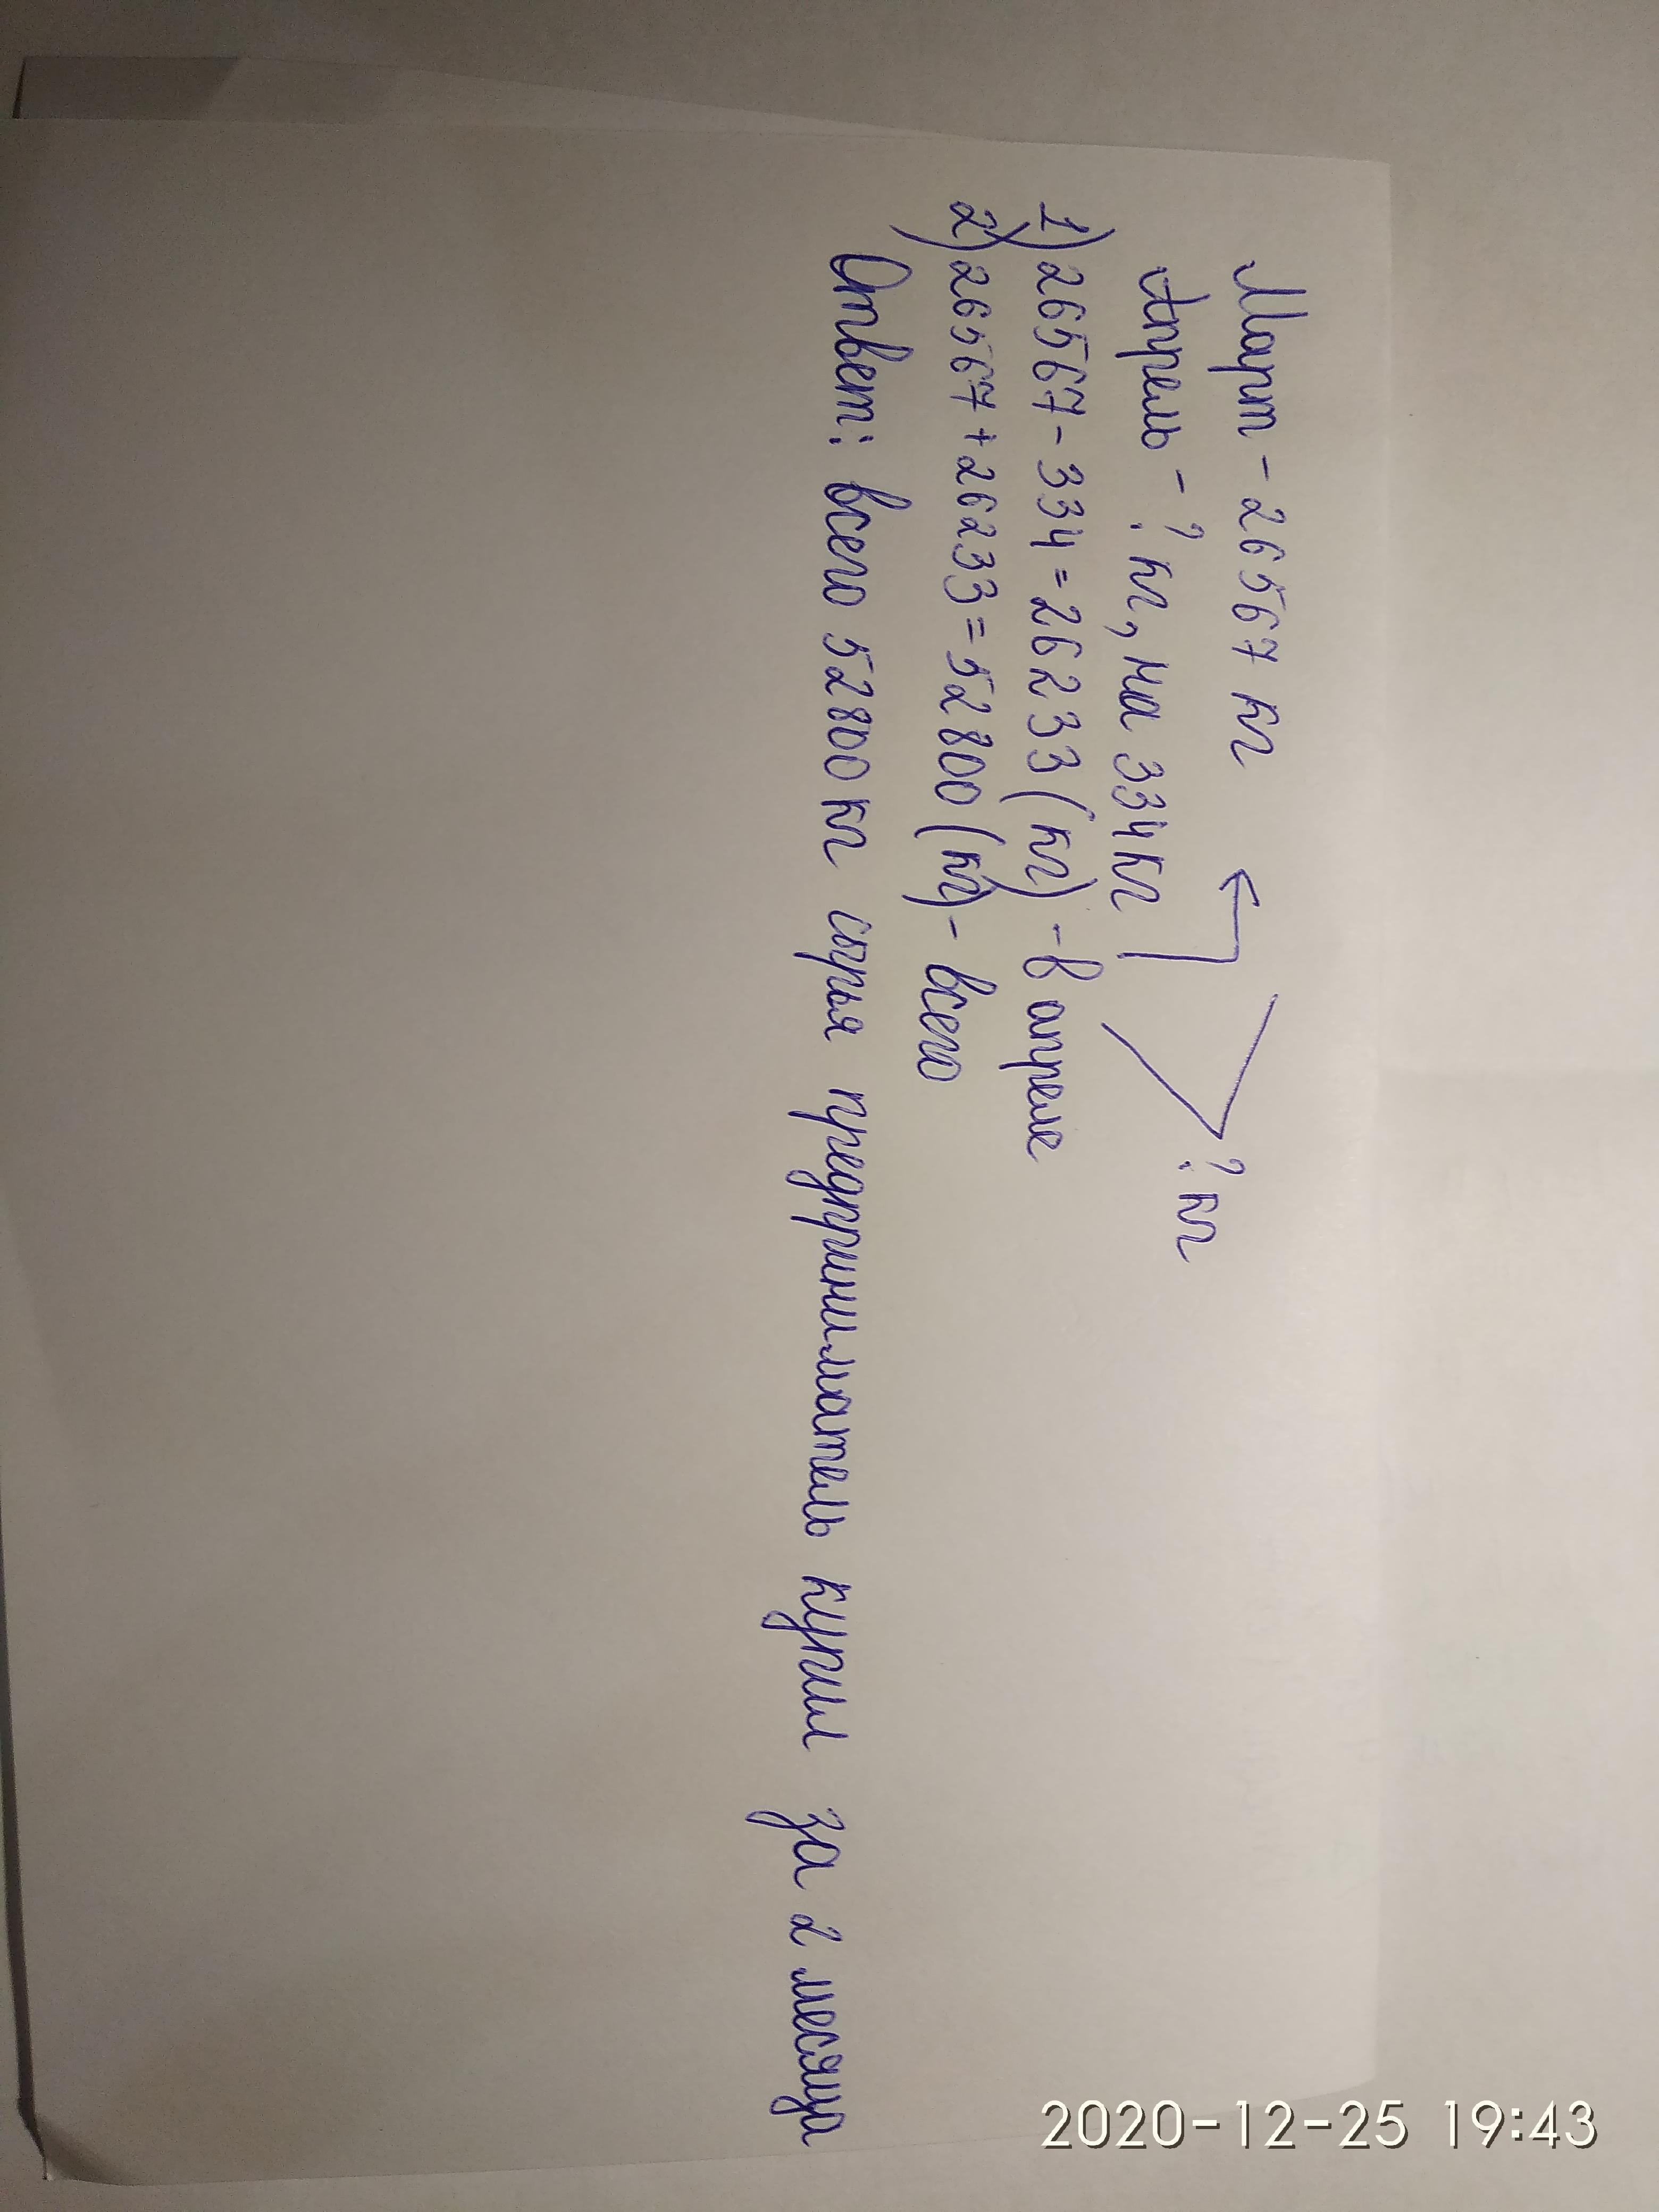 Март - 26567 кг
Апрель - ? кг, на 334кг
? кг
1) 26567 - 334 = 26233 (кг) - в апреле
2) 26567 + 26233 = 52800 (кг) - всего
Ответ: всего 52800 кг сырья предприниматель купил за 2 месяца
2020-12-25 19:43